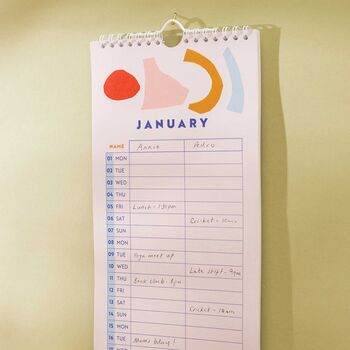 JANUARY
NAME Annie Pedro
01 MON
02 TUE
03 WED
04 THU
05 FRI Lunch - 1:30pm
06 SAT Cricket - 10am
07 SUN
08 MON
09 TUE Yoga meet up
10 WED Late shift - 9pm
11 THU Book club - 8pm
12 FRI
13 SAT Cricket - 10am
14 SUN
15 MON
16 TUE Mum's bday!